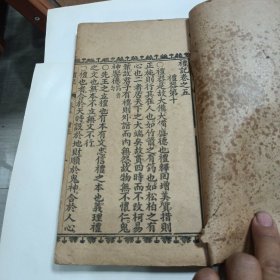 禮記卷之五
禮器第十
禮器是故大備大備盛德也禮釋回增美質措則
正施則行其在人也如竹箭之有筠也如松柏之有
心也二者居天下之大端矣故貫四時而不改柯易
葉故君子有禮則外諧而內無怨故物無不懷仁鬼
神饗德
○先王之立禮也有本有文忠信禮之本也義理禮
之文也無本不立無文不行
○禮也者合於天時設於地財順於鬼神合於人心